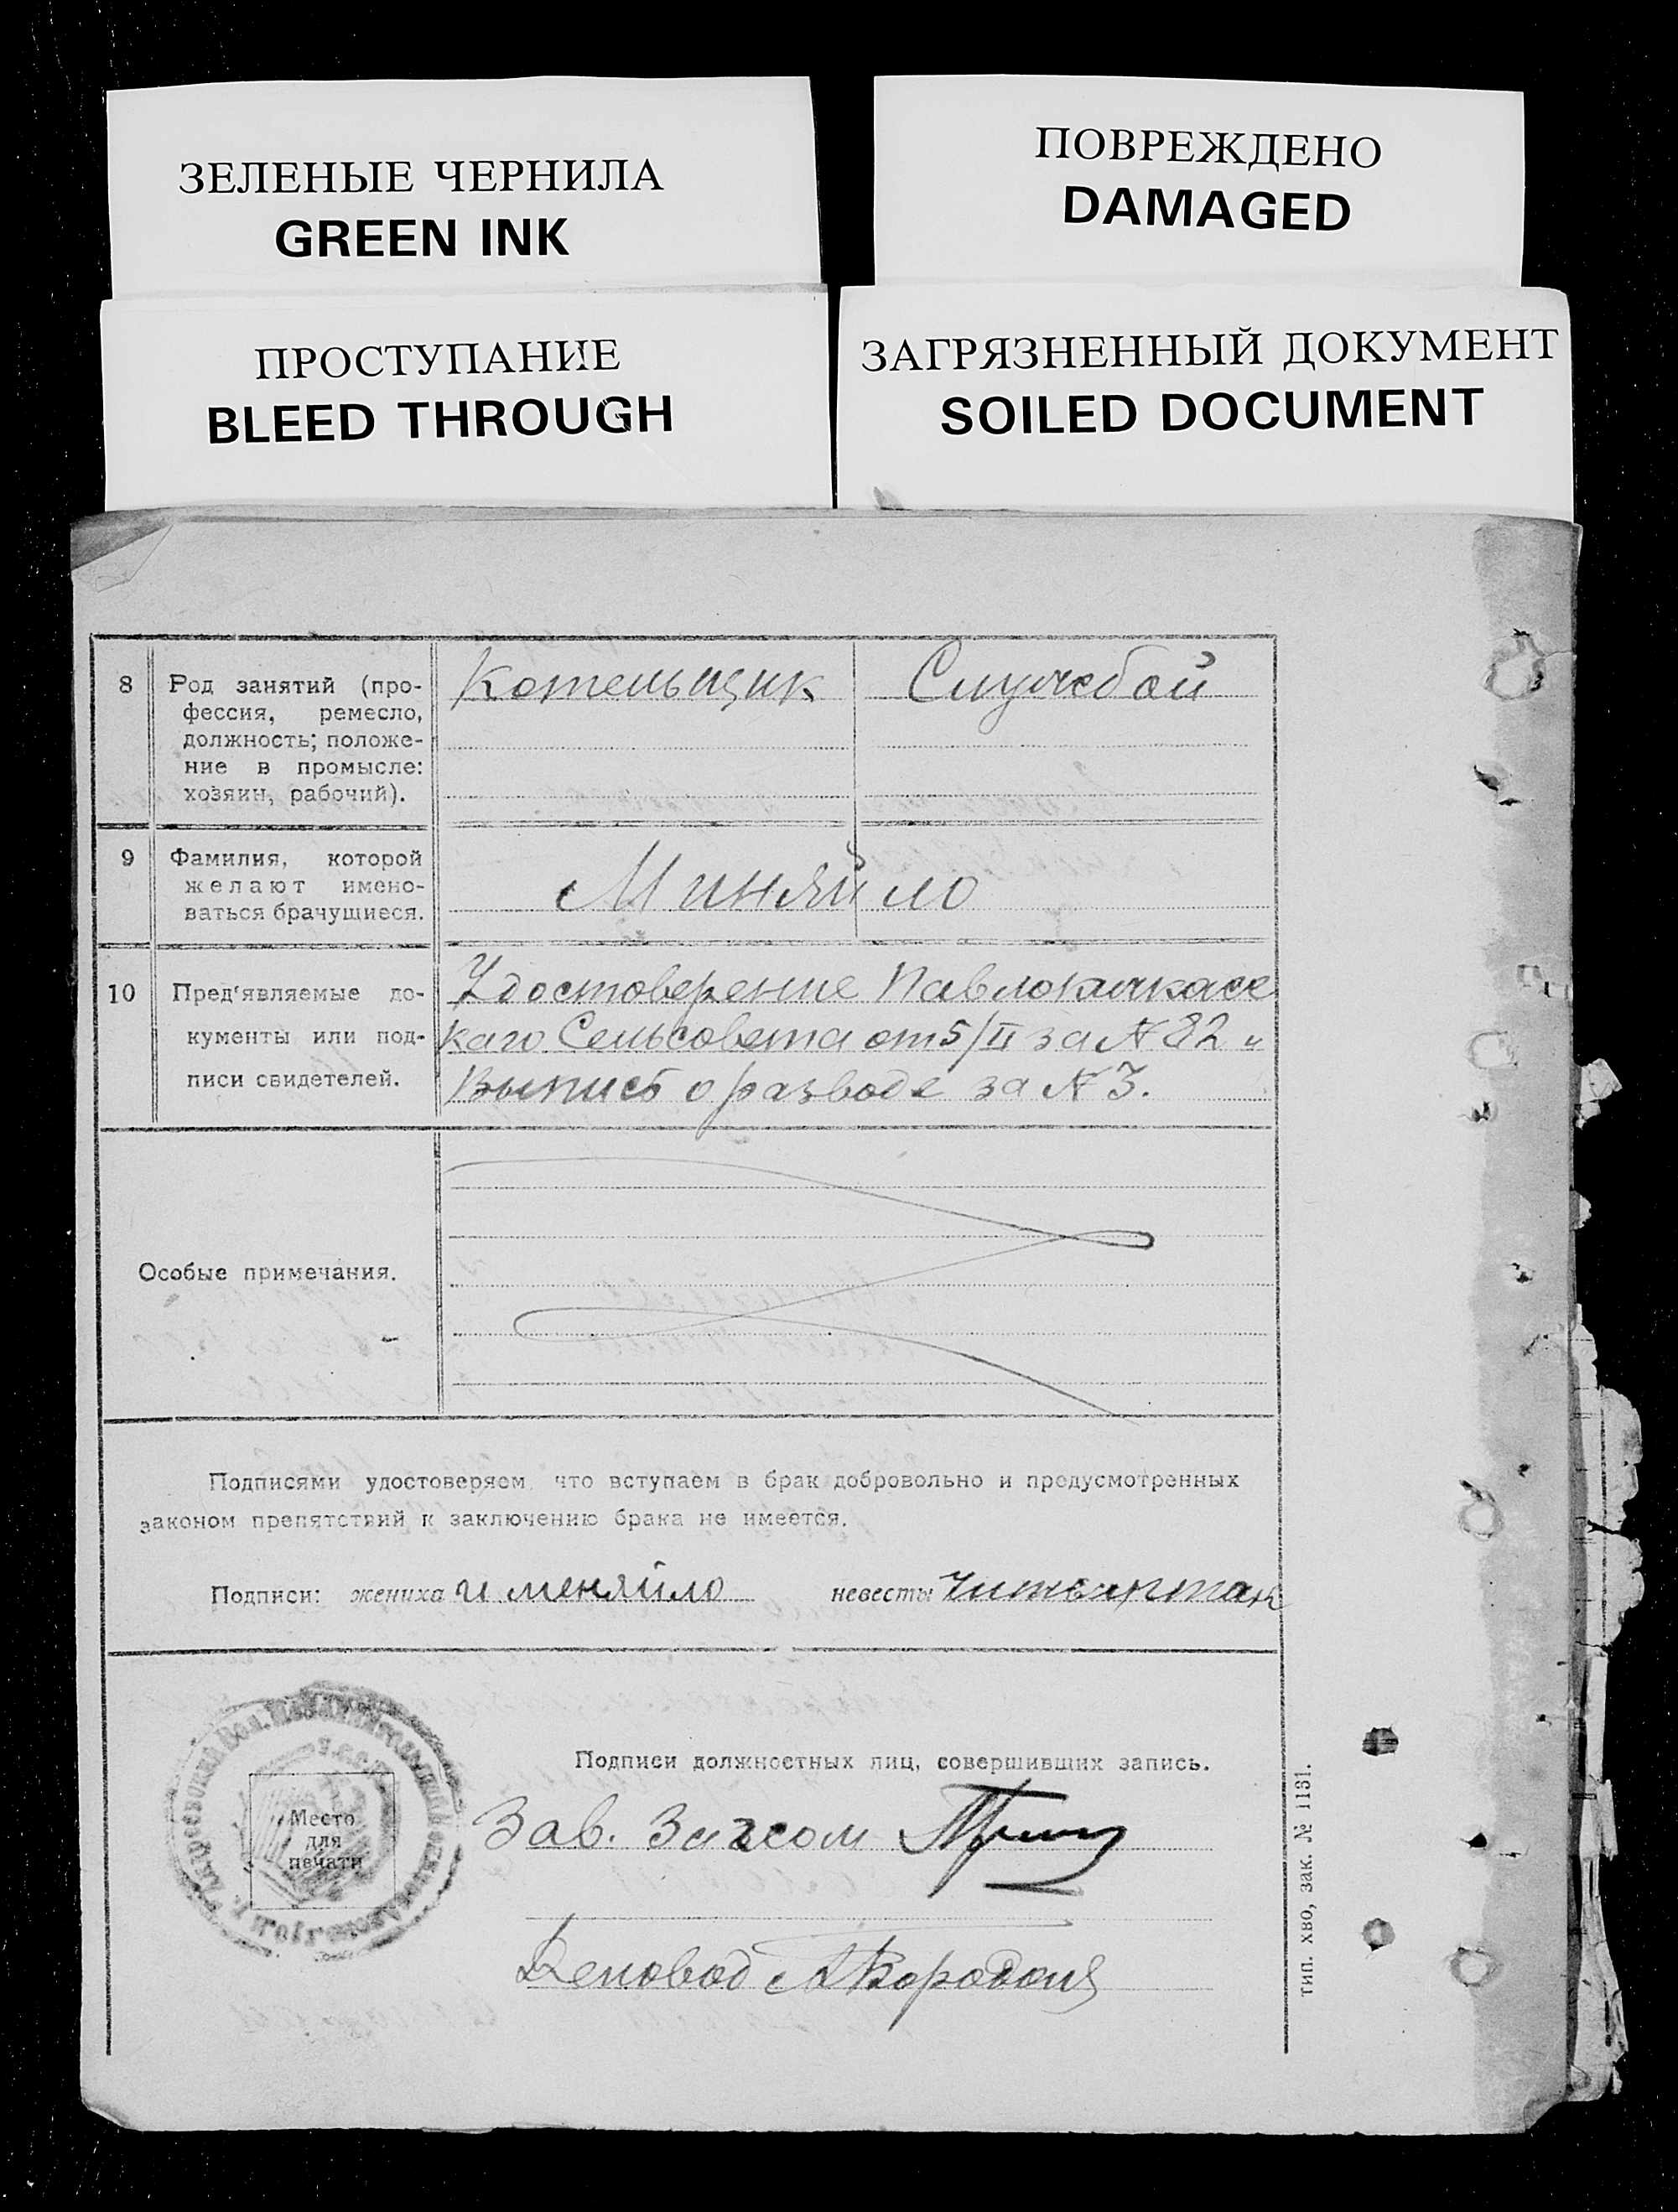 ЗЕЛЕНЫЕ ЧЕРНИЛА
GREEN INK
ПОВРЕЖДЕНО
DAMAGED
ПРОСТУПАНИЕ
BLEED THROUGH
ЗАГРЯЗНЕННЫЙ ДОКУМЕНТ
SOILED DOCUMENT
8 Род занятий (про-
фессия, ремесло,
должность; положе-
ние в промысле:
хозяин, рабочий).
Котельщик Службой
9 Фамилия, которой
желают имено-
ваться брачущиеся.
Миняйло
10 Пред'являемые до-
кументы или под-
писи свидетелей.
Удостоверение Павлокичкасс
каго Сельсовета от 5/II за № 82 и
Выпись о разводе за № 3.
Особые примечания.
Подписями удостоверяем, что вступаем в брак добровольно и предусмотренных
законом препятствий к заключению брака не имеется.
Подписи: жениха И меняйло невесты
Место
для
печати
Подписи должностных лиц, совершивших запись.
Зав. Загсом
Деловод
тип. хво, зак. № 1131.